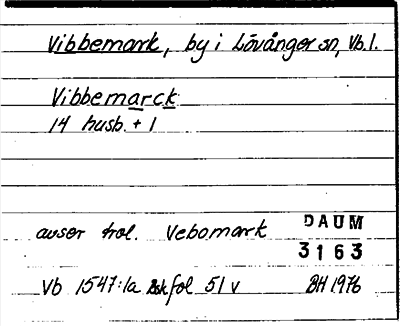 Vibbemark, by i Lövånger sn, Vb.l.
Vibbemarck
14 husb. + 1
avser trol. Vebomark
DAUM
3163
Vb 1547:1a fol 51 v
BH 1976